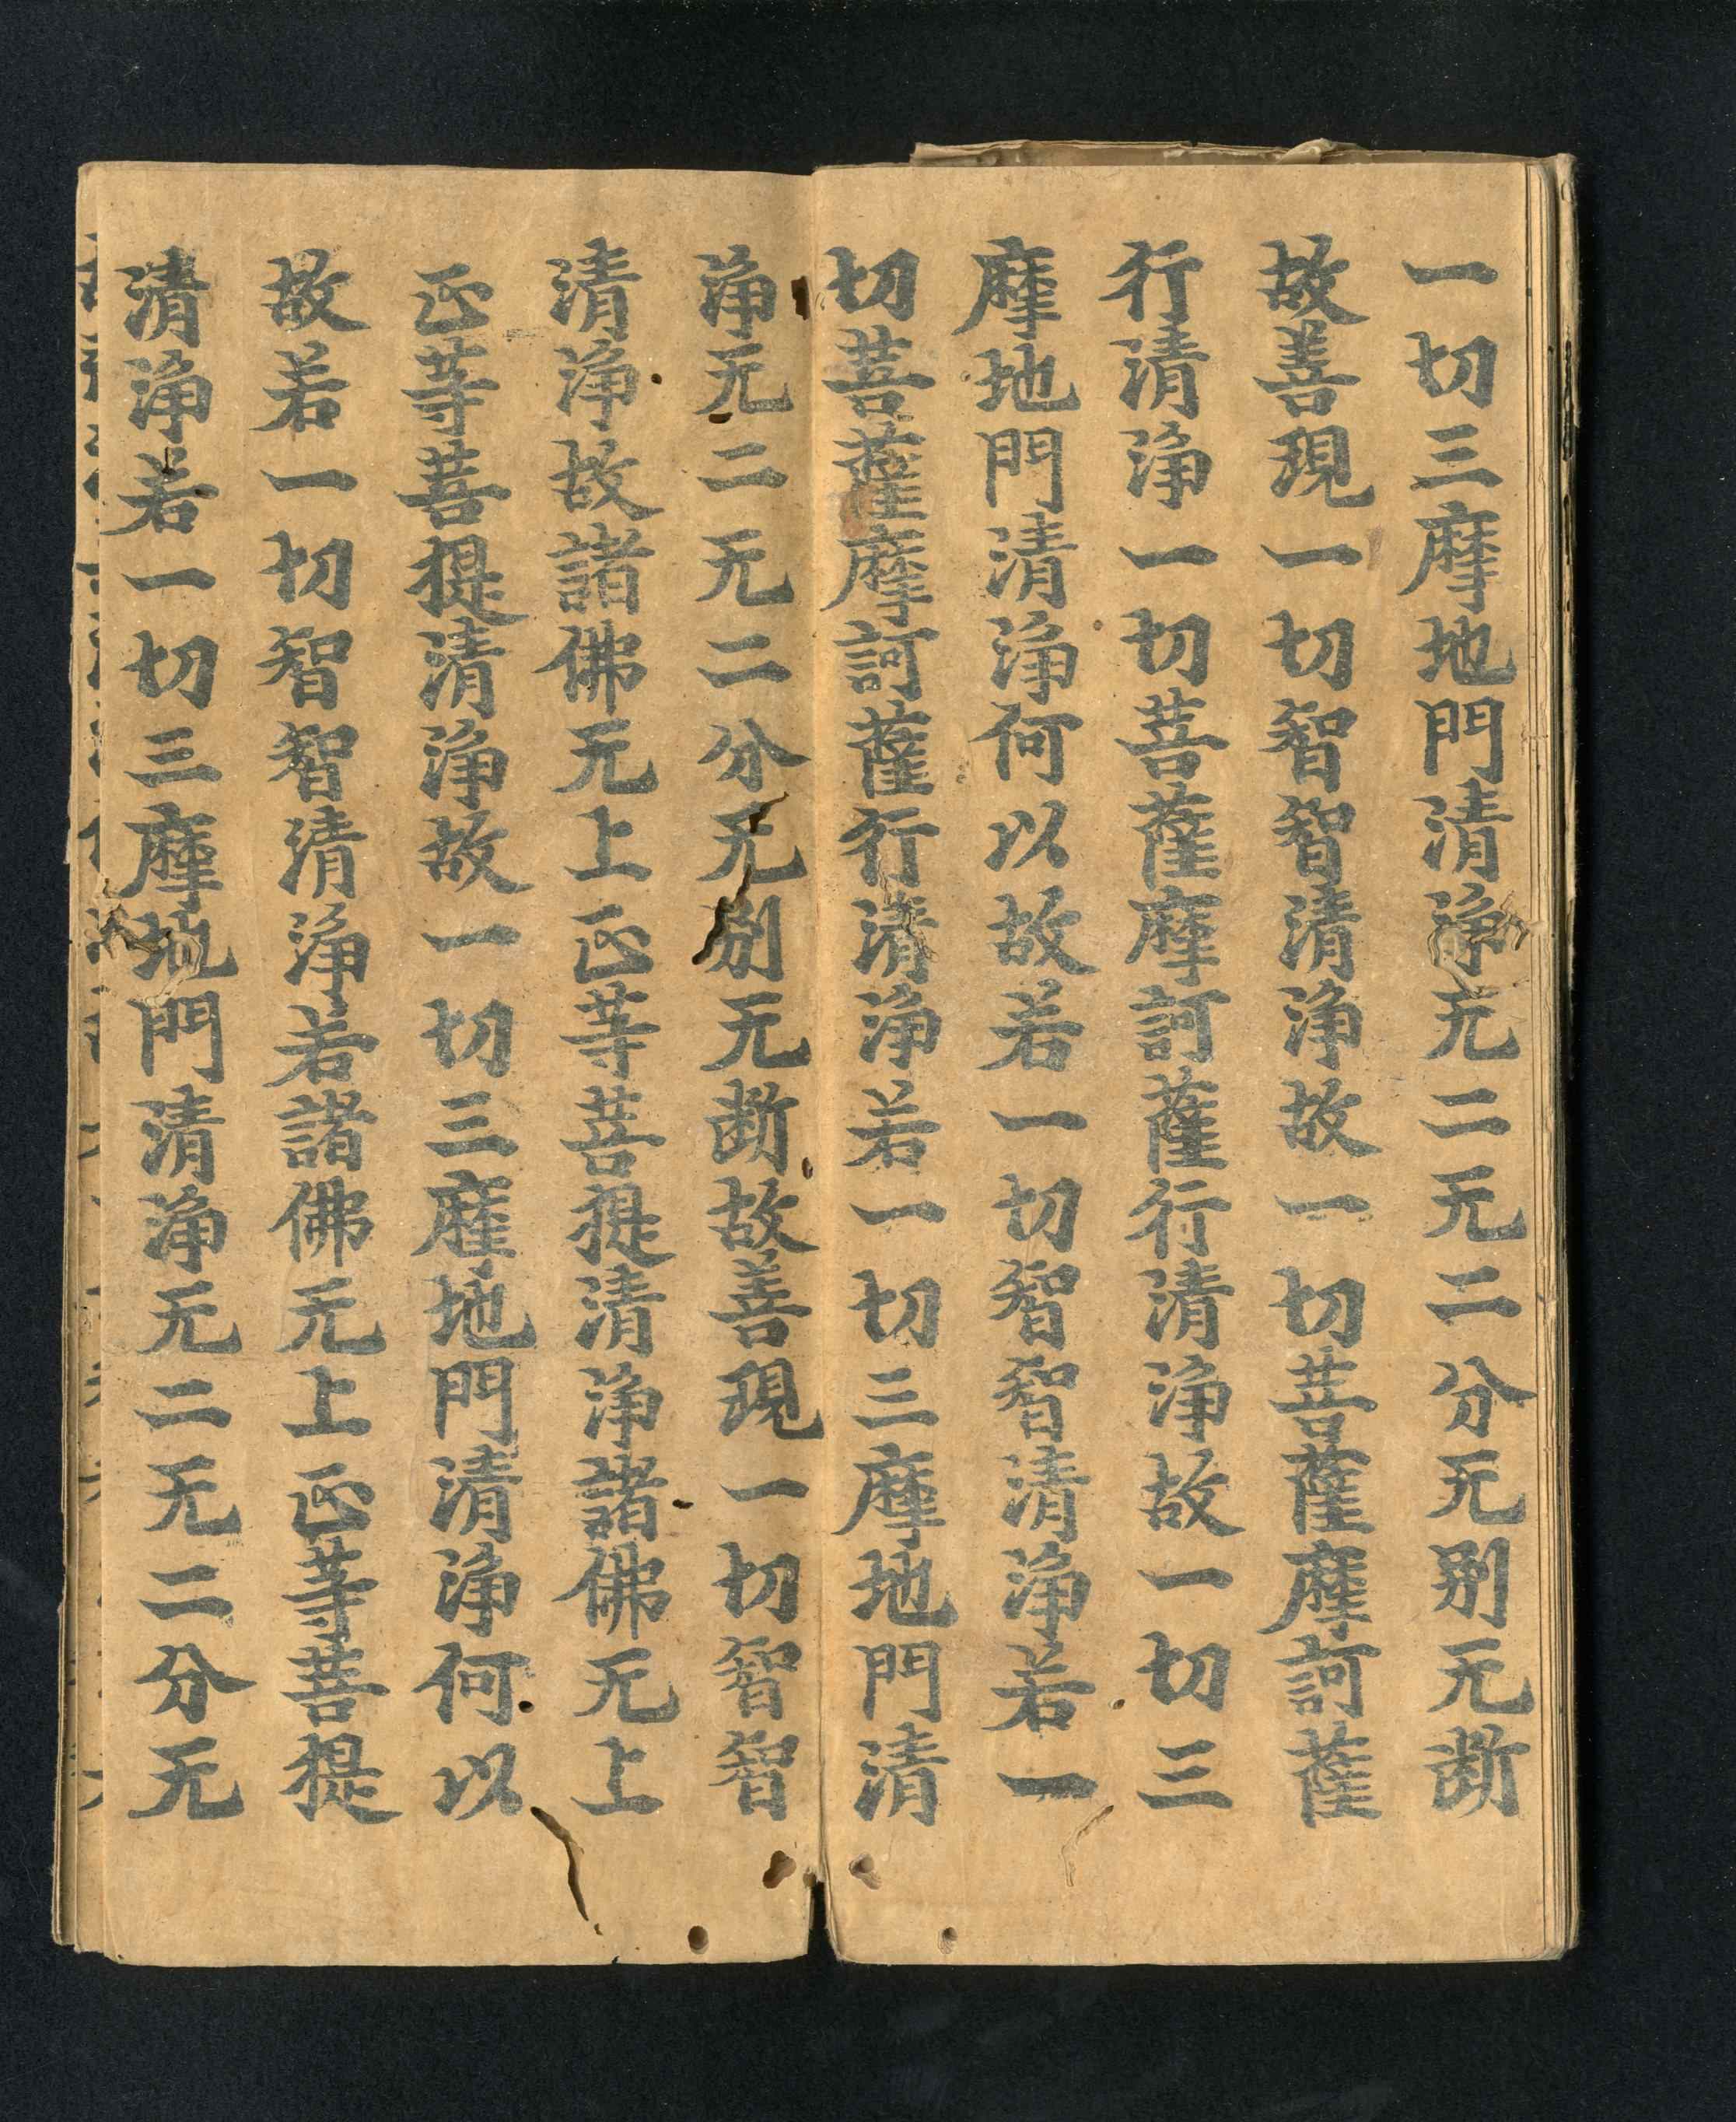 一切三摩地門清淨无二无二分无别无断
故善現一切智智清淨故一切菩薩摩訶薩
行清淨一切菩薩摩訶薩行清淨故一切三
摩地門清淨何以故若一切智智清淨若一
切菩薩摩訶薩行清淨若一切三摩地門清
淨无二无二分无别无断故善現一切智智
清淨故諸佛无上正等菩提清淨諸佛无上
正等菩提清淨故一切三摩地門清淨何以
故若一切智智清淨若諸佛无上正等菩提
清淨若一切三摩地門清淨无二无二分无